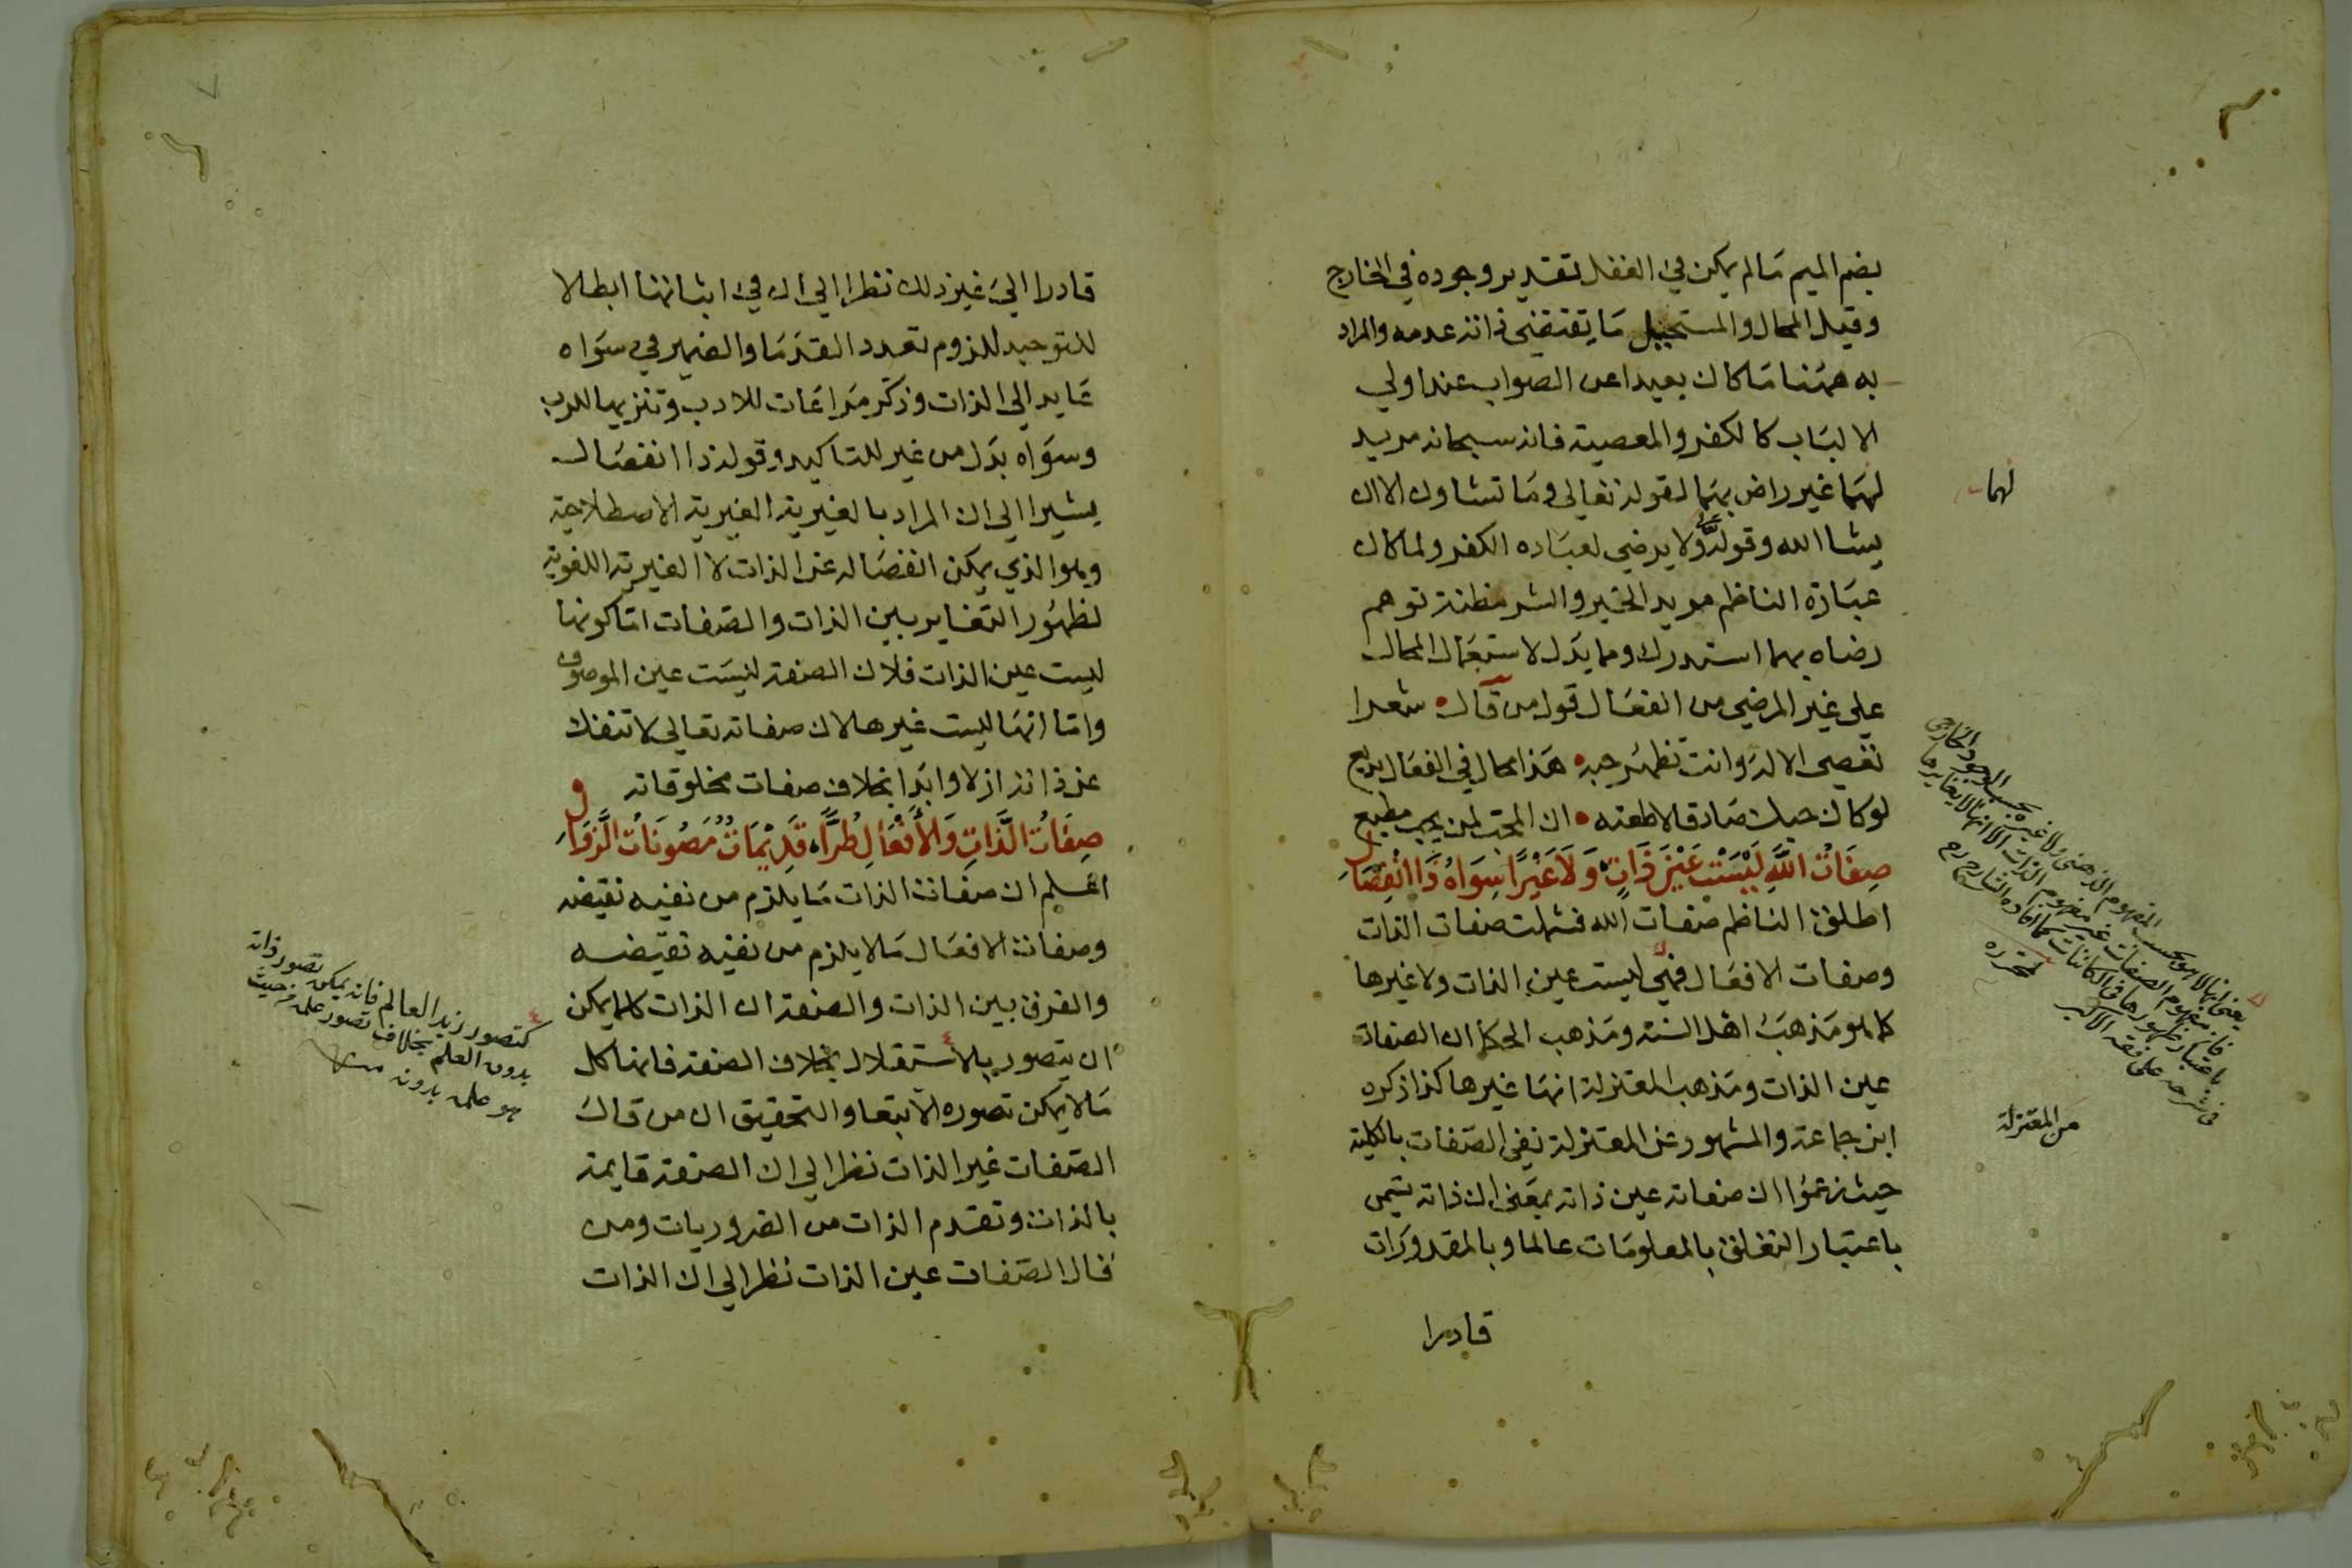 بضم الميم مالم يمكن في العقل تقدير وجوده في الخارج
وقيل المحال والمستحيل ما يقتضي ذاته عدمه والمراد
به ههنا ما كان بعيدا عن الصواب عند اولي
الالباب كالكفر والمعصية فانه سبحانه مريد
لهما غير راض بهما لقوله تعالى وما تشاون الا ان
يشا الله وقوله ولا يرضى لعباده الكفر ولما كان
عبارة الناظم مريد الخير والشر مظنة توهم
رضاه بهما استدرك ومما يدل لاستعمال المحال
على غير المرضي من الفعال قول من قال شعرا
تعصي الاله وانت تظهر حبه هذا محال في الفعال بديع
لو كان حبك صادقا لاطعته ان المحب لمن يحب مطيع
صِفَاتُ اللهِ لَيْسَتْ عَيْنَ ذَاتٍ وَلَا غَيْرًا سِوَاهُ ذَا انْفِصَالِ
اطلق الناظم صفات الله فشملت صفات الذات
وصفات الافعال فهي ليست عين الذات ولا غيرها
كما هو مذهب اهل السنة ومذهب الحكما ان الصفات
عين الذات ومذهب المعتزلة انها غيرها كذا ذكره
ابن جماعة والمشهور عن المعتزلة نفي الصفات بالكلية
حيث زعموا ان صفاته عين ذاته بمعنى ان ذاته يسمى
باعتبار التعلق بالمعلومات عالما وبالمقدورات
قادرا
لهما
يعني انها لا هو بحسب المفهوم الذهني ولا غيره بحسب الوجود الخارجي
فان مفهوم الصفات غير مفهوم الذات الا انها لا يغايرها
باعتبار ظهورها في الكائنات كما افاده الشارح رح
في شرحه على فقه الاكبر
لمحرره
من المعتزلة
قادرا الى غير ذلك نظرا الى ان في اثباتها ابطالا
للتوحيد للزوم تعدد القدما والضمير في سواه
عايد الى الذات وذكر مراعات للادب وتنزيها للرب
وسواه بدل من غير للتاكيد وقوله ذا انفصال
يشير الى ان المراد بالغيرية الغيرية الاصطلاحية
وهو الذي يمكن انفصاله عن الذات لا الغيرية اللغوية
لظهور التغاير بين الذات والصفات اما كونها
ليست عين الذات فلان الصفة ليست عين الموصوف
واما انها ليست غيرها لان صفاته تعالى لا تنفك
عن ذاته ازلا وابدا بخلاف صفات مخلوقاته
صِفَاتُ الذَّاتِ وَالْأَفْعَالِ طُرًّا قَدِيْمَاتٌ مَصُونَاتُ الزَّوَالِ
اعلم ان صفات الذات ما يلزم من نفيه نقيضه
وصفات الافعال ما لا يلزم من نفيه نقيضه
والفرق بين الذات والصفة ان الذات كلما يمكن
ان يتصور بالاستقلال بخلاف الصفة فانها كل
ما لا يمكن تصوره الا تبعا والتحقيق ان من قال
الصفات غير الذات نظر الى ان الصفة قايمة
بالذات وتقدم الذات من الضروريات ومن
قال الصفات عين الذات نظر الى ان الذات
كتصور زيد العالم فانه يمكن تصور ذاته
بدون العلم بخلاف تصور علمه من حيث
هو علمه بدون